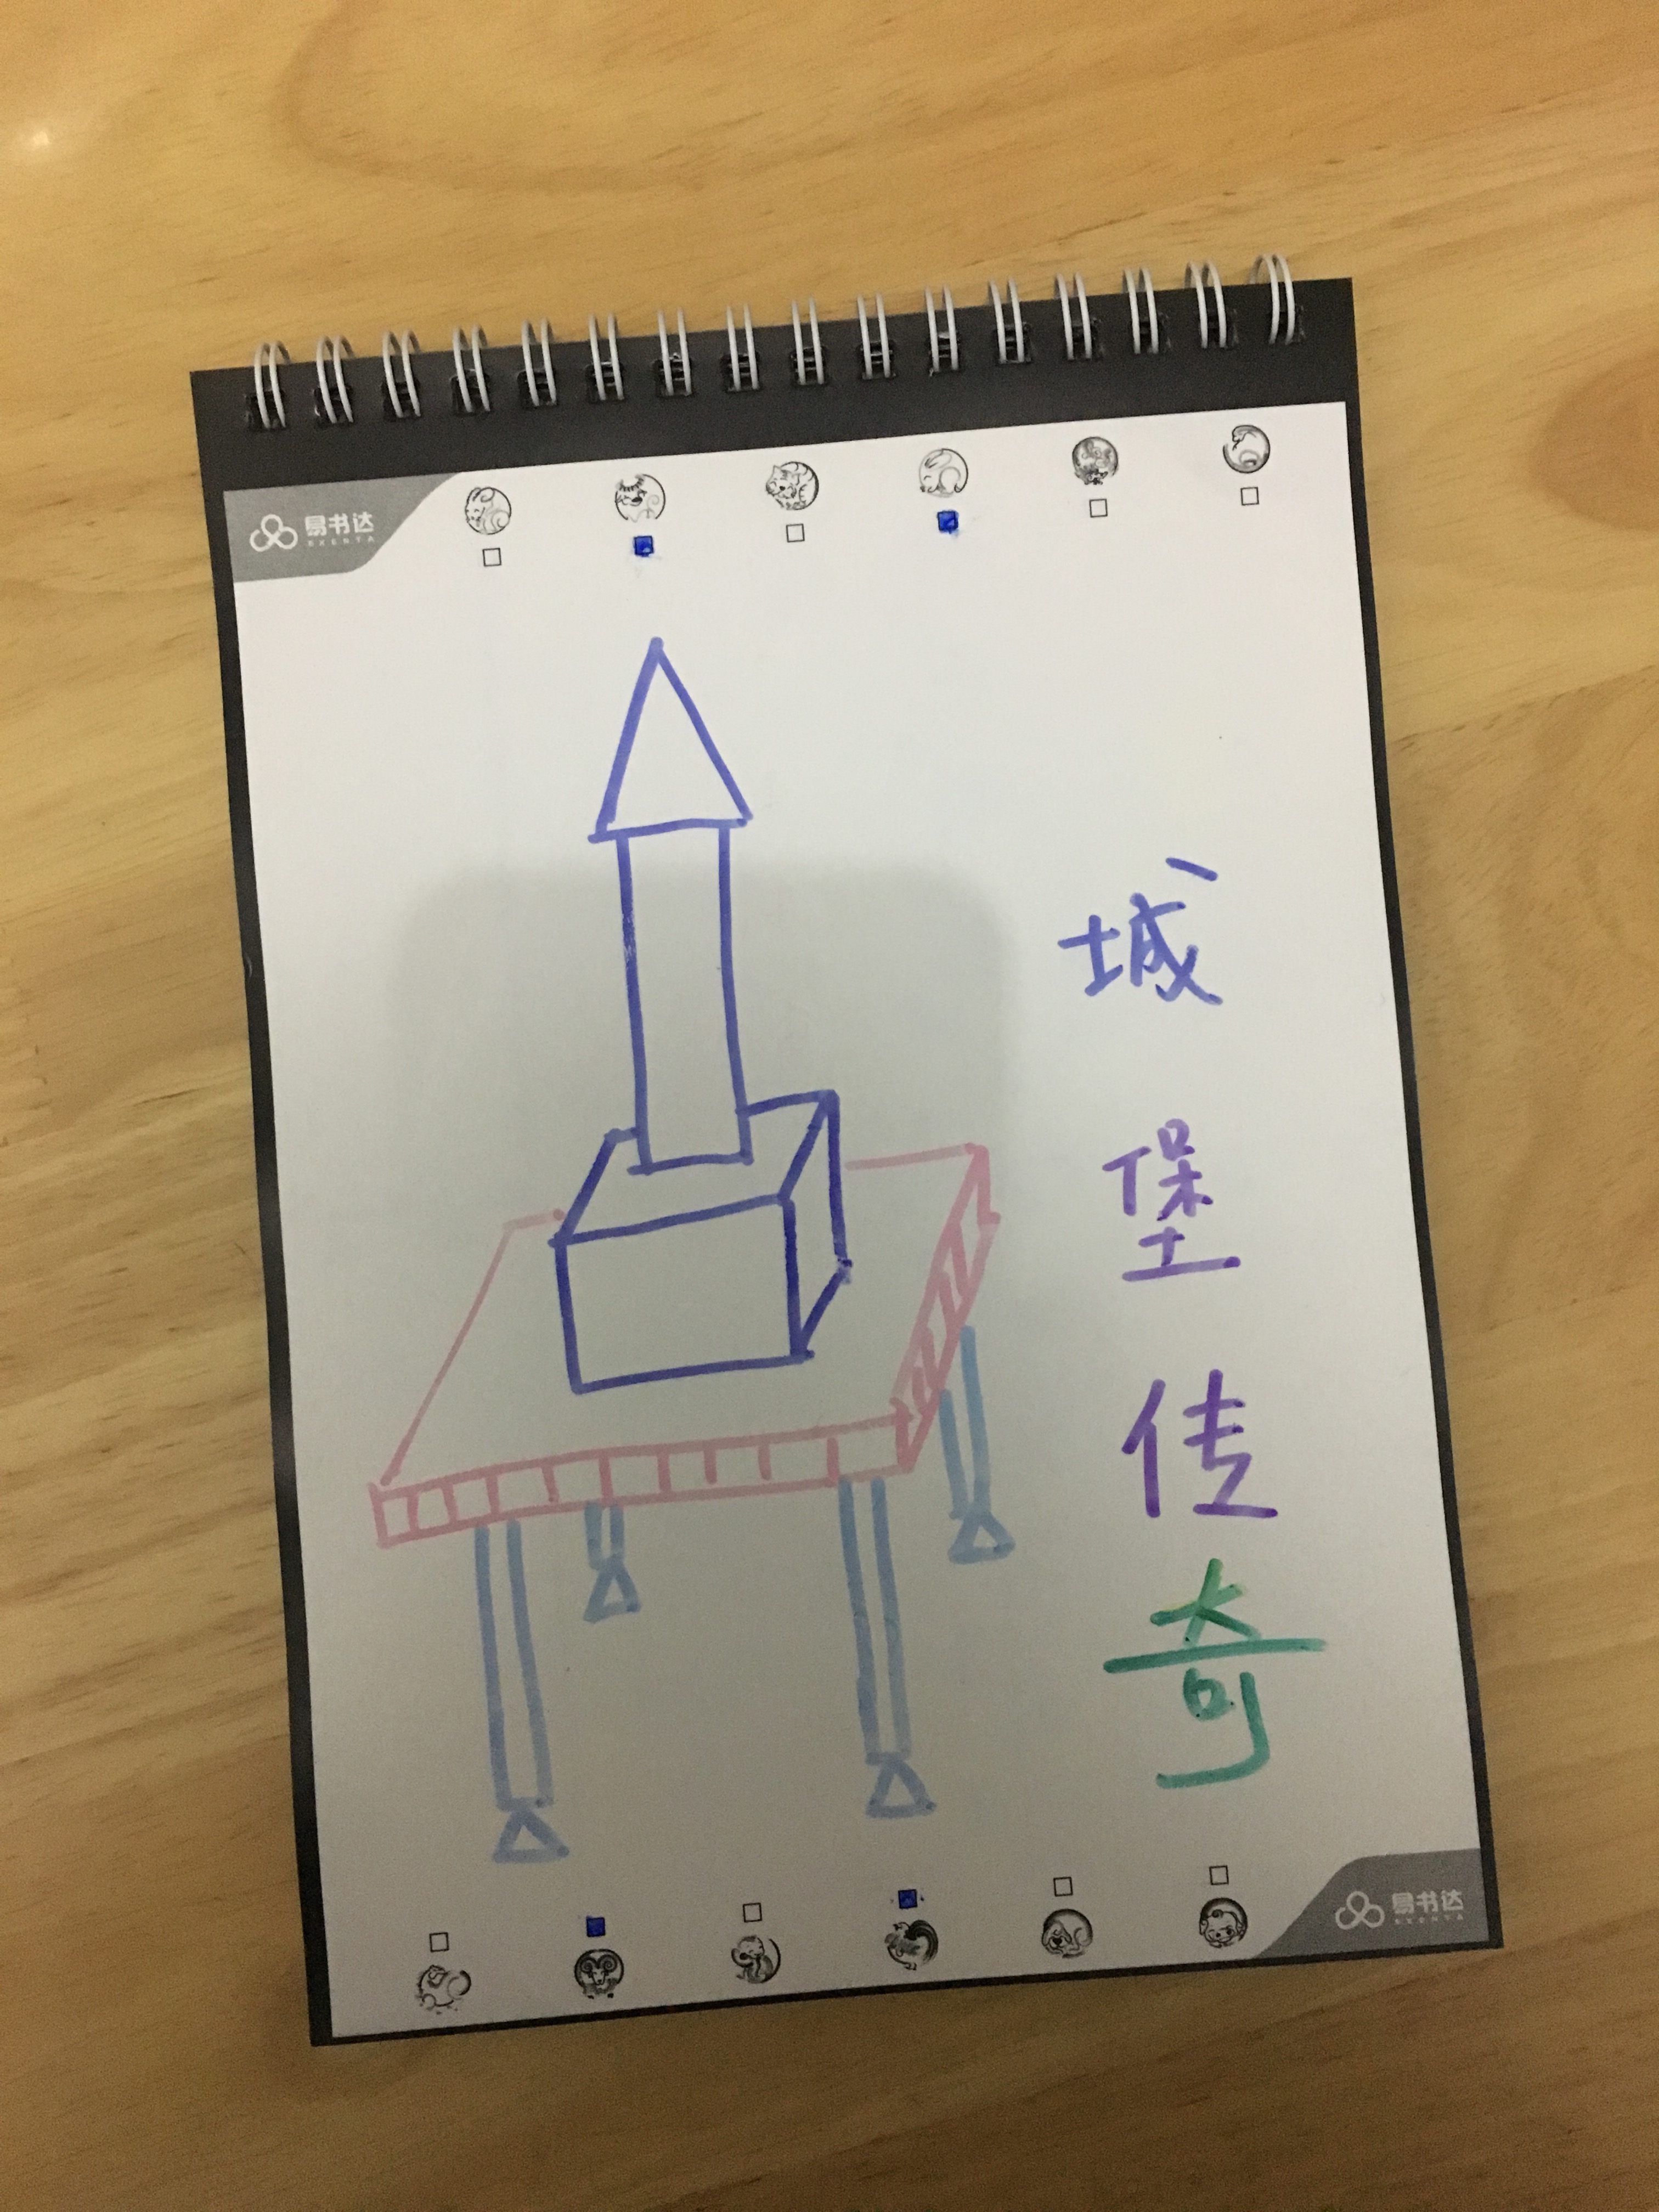 易书达
EXENTA
城
堡
传
奇
易书达
EXENTA